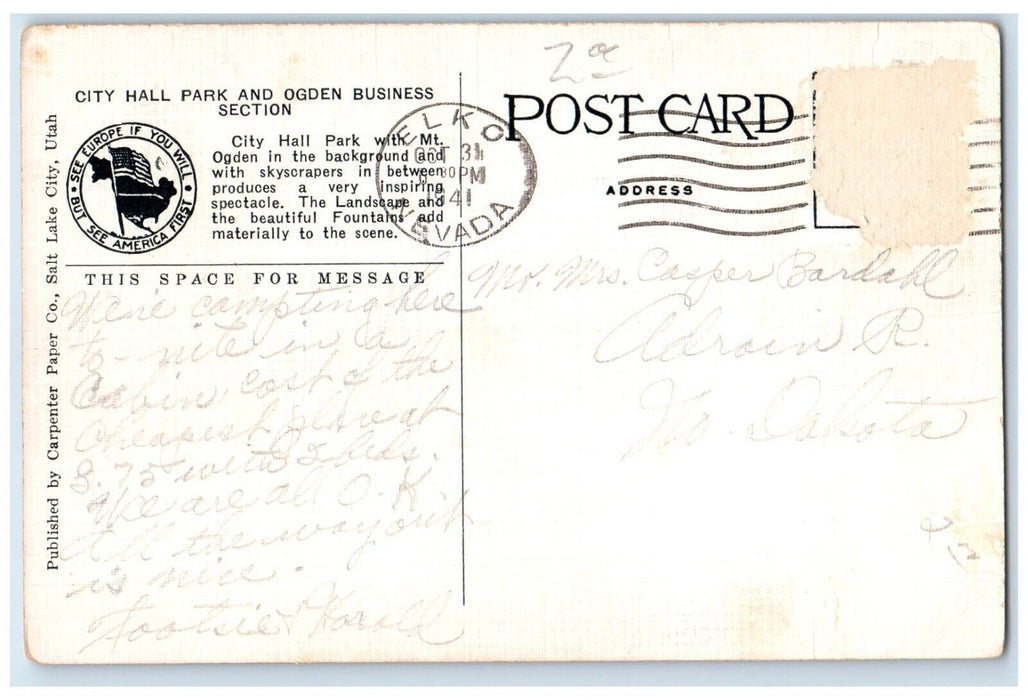 2¢
CITY HALL PARK AND OGDEN BUSINESS
SECTION
SEE EUROPE IF YOU WILL
BUT SEE AMERICA FIRST
City Hall Park with Mt.
Ogden in the background and
with skyscrapers in between
produces a very inspiring
spectacle. The Landscape and
the beautiful Fountains add
materially to the scene.
ELKO
OCT 31
30 PM
1941
NEVADA
POST CARD
ADDRESS
THIS SPACE FOR MESSAGE
We're campting here
to-nite in a
Cabin, cost of the
Cheapest place at
3.75 with 2 beds.
We are all O.K
All the way out
is nice.
Tootsie & Harold
Mr. Mrs. Casper Bardahl
Adrain R.
No. Dakota
Published by Carpenter Paper Co., Salt Lake City, Utah